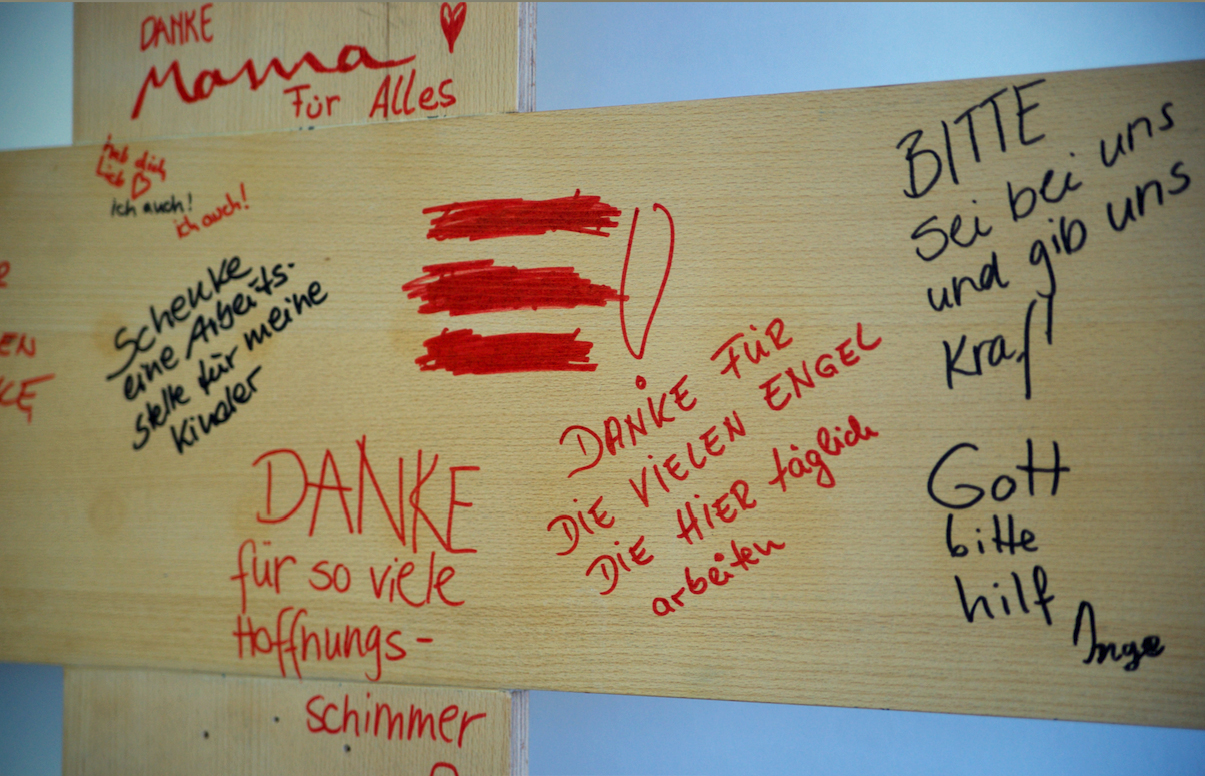 DANKE
Mama
Für Alles
hab dich
lieb
ich auch!
ich auch!
EN
KE
Schenke
eine Arbeits-
stelle für meine
Kinder
DANKE
für so viele
Hoffnungs-
schimmer
!
DANKE FÜR
DIE VIELEN ENGEL
DIE HIER täglich
arbeiten
BITTE
sei bei uns
und gib uns
Kraft
Gott
bitte
hilf
Inge